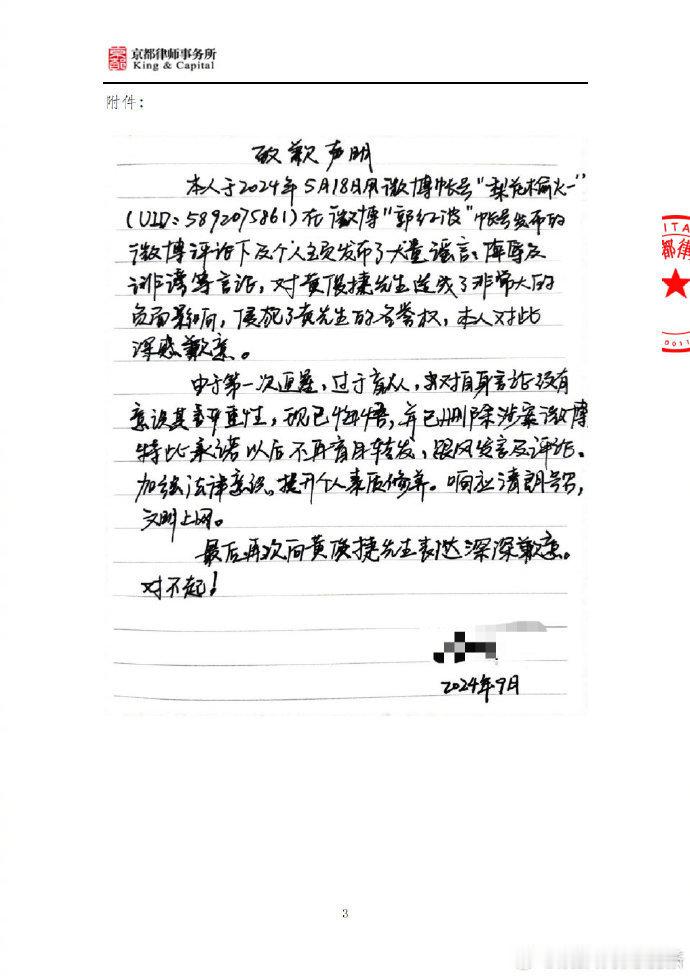 京都律师事务所
King & Capital
附件：
致歉声明
本人于2024年5月18日用微博帐号"梨花榆火一"
(UID:5892075861)在微博"郭红波"帐号发布的
微博评论下及个人主页发布了大量谣言、侮辱及
诽谤等言论，对黄俊捷先生造成了非常大的
负面影响，侵犯了黄先生的名誉权，本人对此
深感歉意。
由于第一次追星，过于盲从，对自身言论没有
意识其严重性，现已悔悟，并已删除涉案微博
特此承诺以后不再盲目转发，跟风发言及评论。
加强法律意识。提升个人素质修养。响应清朗号召，
文明上网。
最后再次向黄俊捷先生表达深深歉意。
对不起！
2024年9月
3